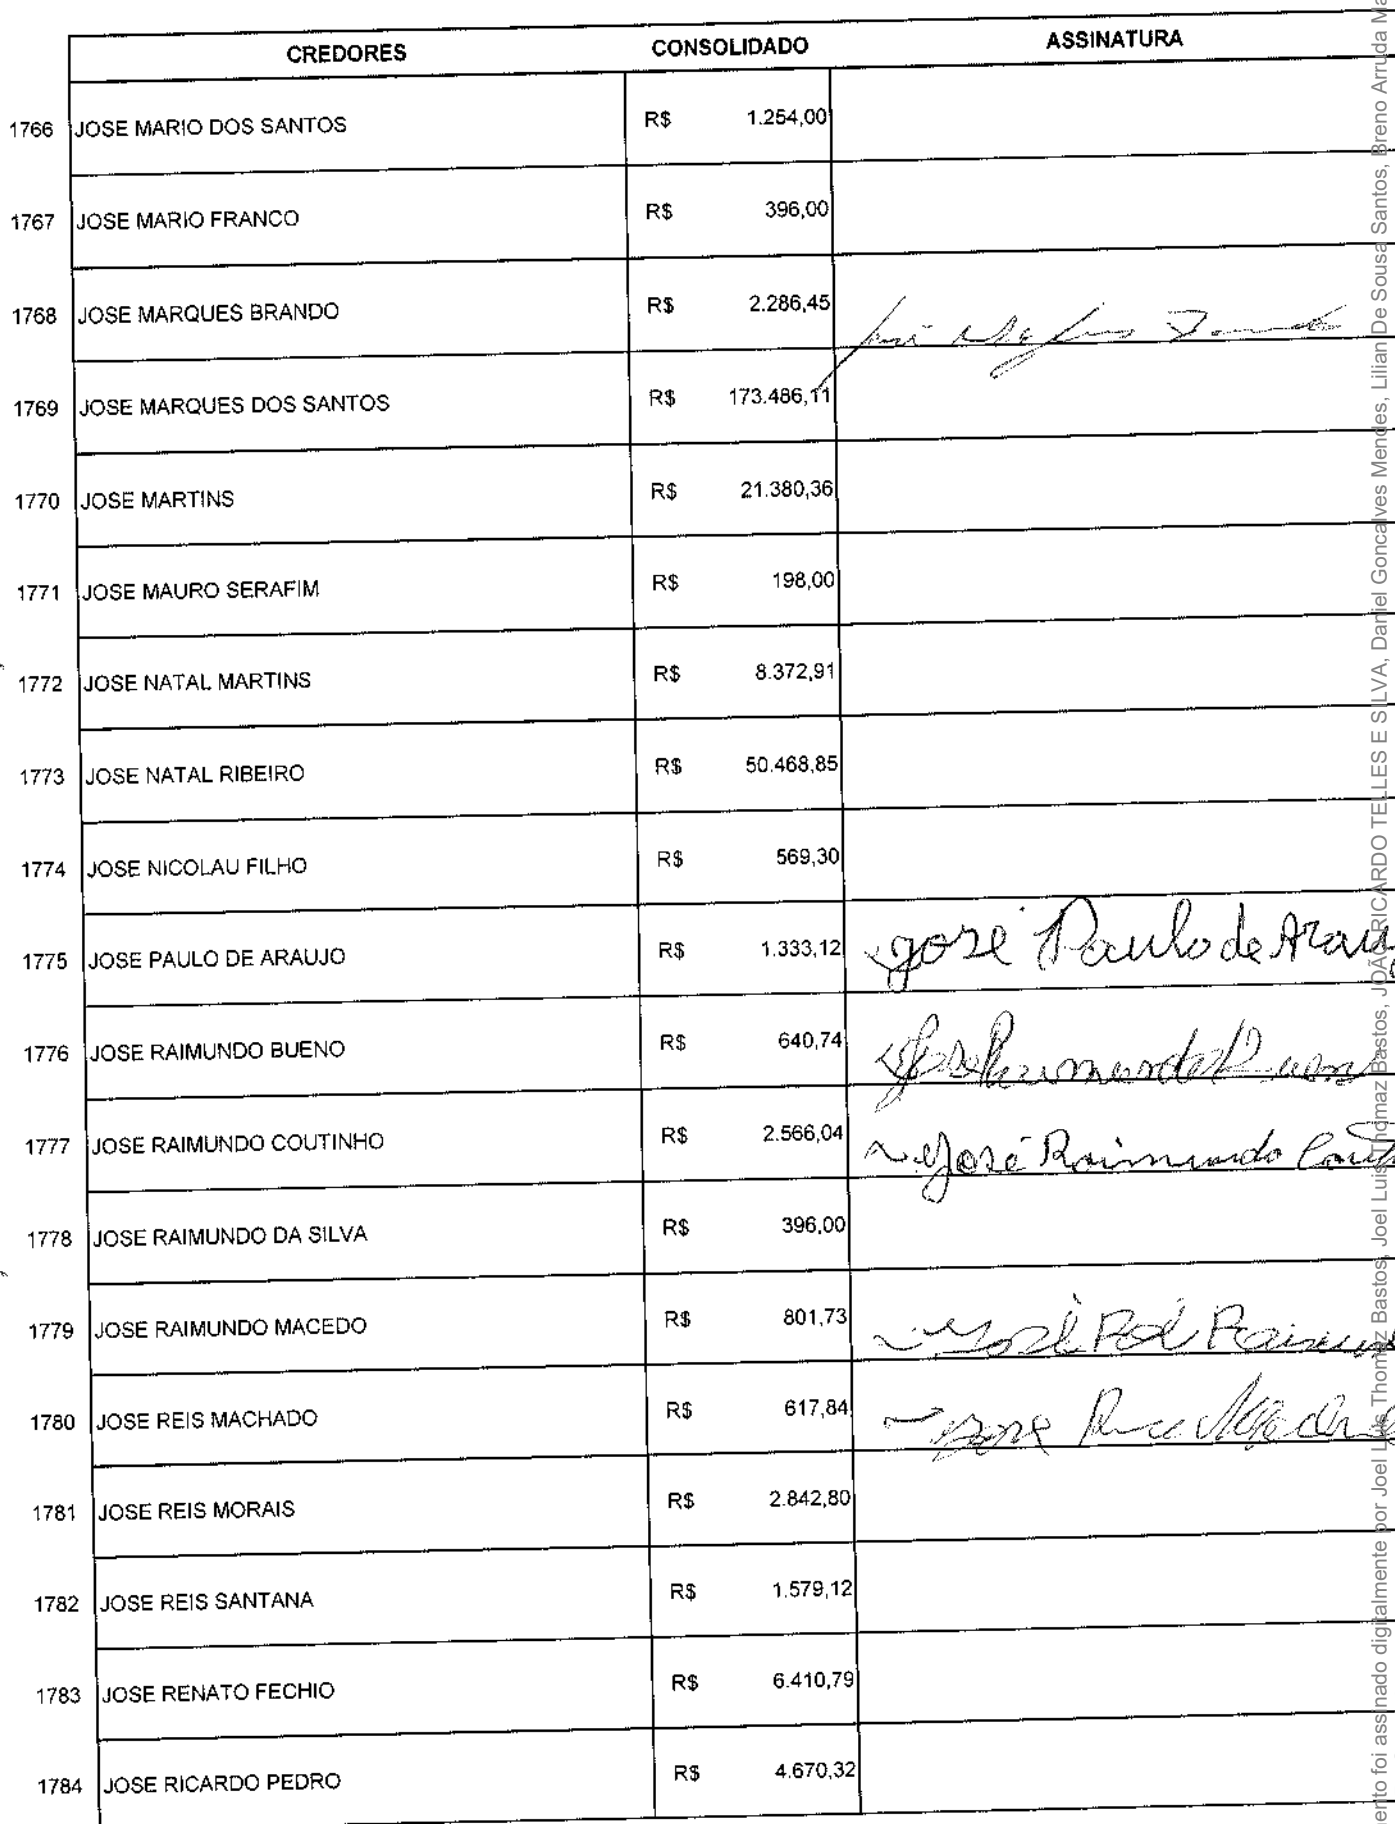 CREDORES CONSOLIDADO ASSINATURA
1766 JOSE MARIO DOS SANTOS R$ 1.254,00
1767 JOSE MARIO FRANCO R$ 396,00
1768 JOSE MARQUES BRANDO R$ 2.286,45 José
1769 JOSE MARQUES DOS SANTOS R$ 173.486,11
1770 JOSE MARTINS R$ 21.380,36
1771 JOSE MAURO SERAFIM R$ 198,00
1772 JOSE NATAL MARTINS R$ 8.372,91
1773 JOSE NATAL RIBEIRO R$ 50.468,85
1774 JOSE NICOLAU FILHO R$ 569,30
1775 JOSE PAULO DE ARAUJO R$ 1.333,12 José Paulo de Arauj
1776 JOSE RAIMUNDO BUENO R$ 640,74 José Raimundo Bueno
1777 JOSE RAIMUNDO COUTINHO R$ 2.566,04 José Raimundo Cout
1778 JOSE RAIMUNDO DA SILVA R$ 396,00
1779 JOSE RAIMUNDO MACEDO R$ 801,73 José
1780 JOSE REIS MACHADO R$ 617,84 Jose
1781 JOSE REIS MORAIS R$ 2.842,80
1782 JOSE REIS SANTANA R$ 1.579,12
1783 JOSE RENATO FECHIO R$ 6.410,79
1784 JOSE RICARDO PEDRO R$ 4.670,32
ento foi assinado digitalmente por Joel Luis Thomaz Bastos, Joel Luis Thomaz Bastos, JOÃO RICARDO TELLES E SILVA, Daniel Goncalves Mendes, Lilian De Sousa Santos, Breno Arruda Ma